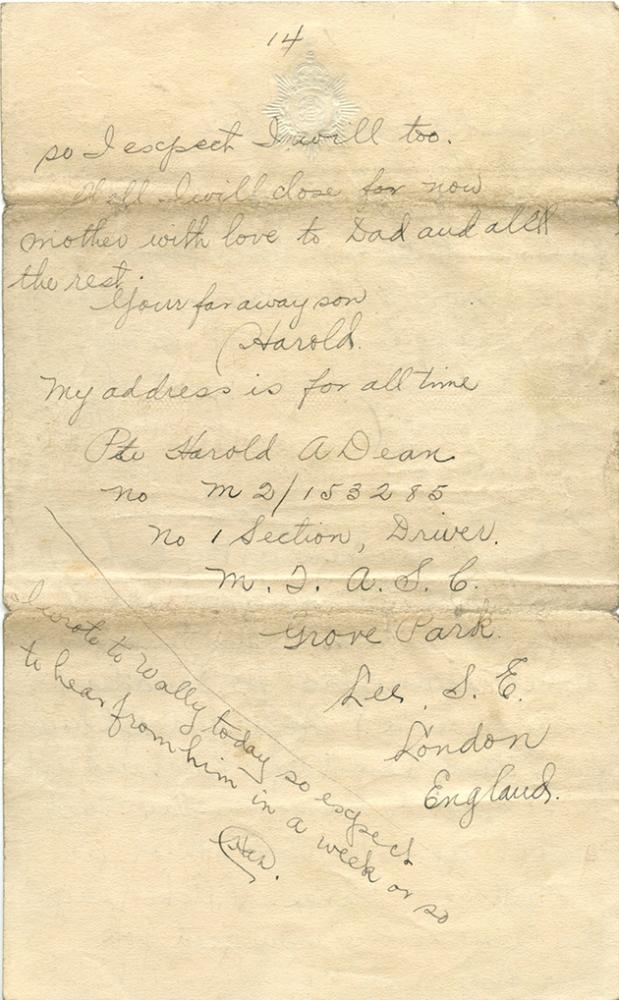 14
so I expect I will too.
Well I will close for now
mother with love to Dad and all
the rest.
Your far away son
Harold.
My address is for all time
Pte Harold A Dean
No M2/153285
No 1 Section, Driver.
M. T. A. S. C.
Grove Park.
Lee, S. E.
London
England.
I wrote to Wally today so expect
to hear from him in a week or so
Har.